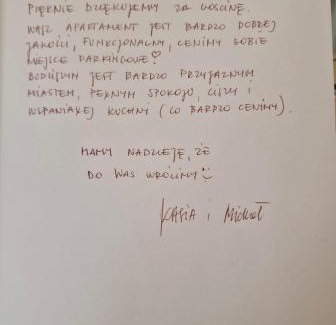 PIĘKNIE DZIĘKUJEMY ZA GOŚCINĘ.
WASZ APARTAMENT JEST BARDZO DOBREJ
JAKOŚCI, FUNKCJONALNY, CENIMY SOBIE
MIEJSCE PARKINGOWE! ♡
JEST BARDZO PRZYJAZNYM
MIASTEM, PEŁNYM SPOKOJU, CISZY I
WSPANIAŁEJ KUCHNI (CO BARDZO CENIMY).
MAMY NADZIEJĘ, ŻE
DO WAS WRÓCIMY :)
KASIA i Michał